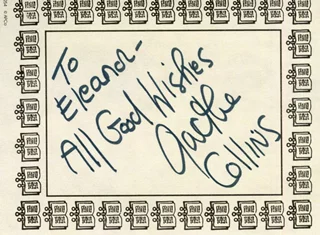 To
Eleanor-
All Good Wishes
Jackie
Collins